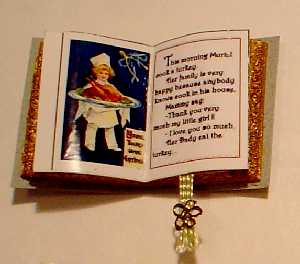 This morning Muriel
cook a turkey.
Her family is very
happy because anybody
knows cook in his house.
Mammy say:
-Thank you very
much my little girl!!
- I love you so much.
Her Dady eat the
turkey...